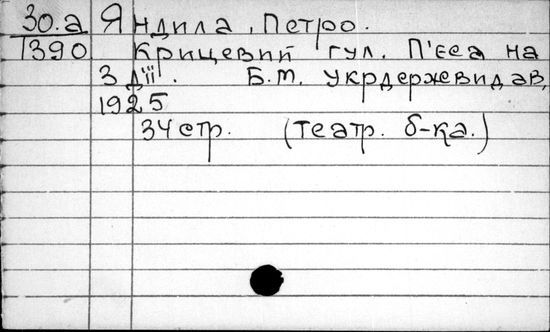 30.а Яндила, Петро.
1390 Крицевий гул. П'єса на
3 дії. Б.м. Укрдержевидав,
1925
34 стр. (театр. б-ка.)